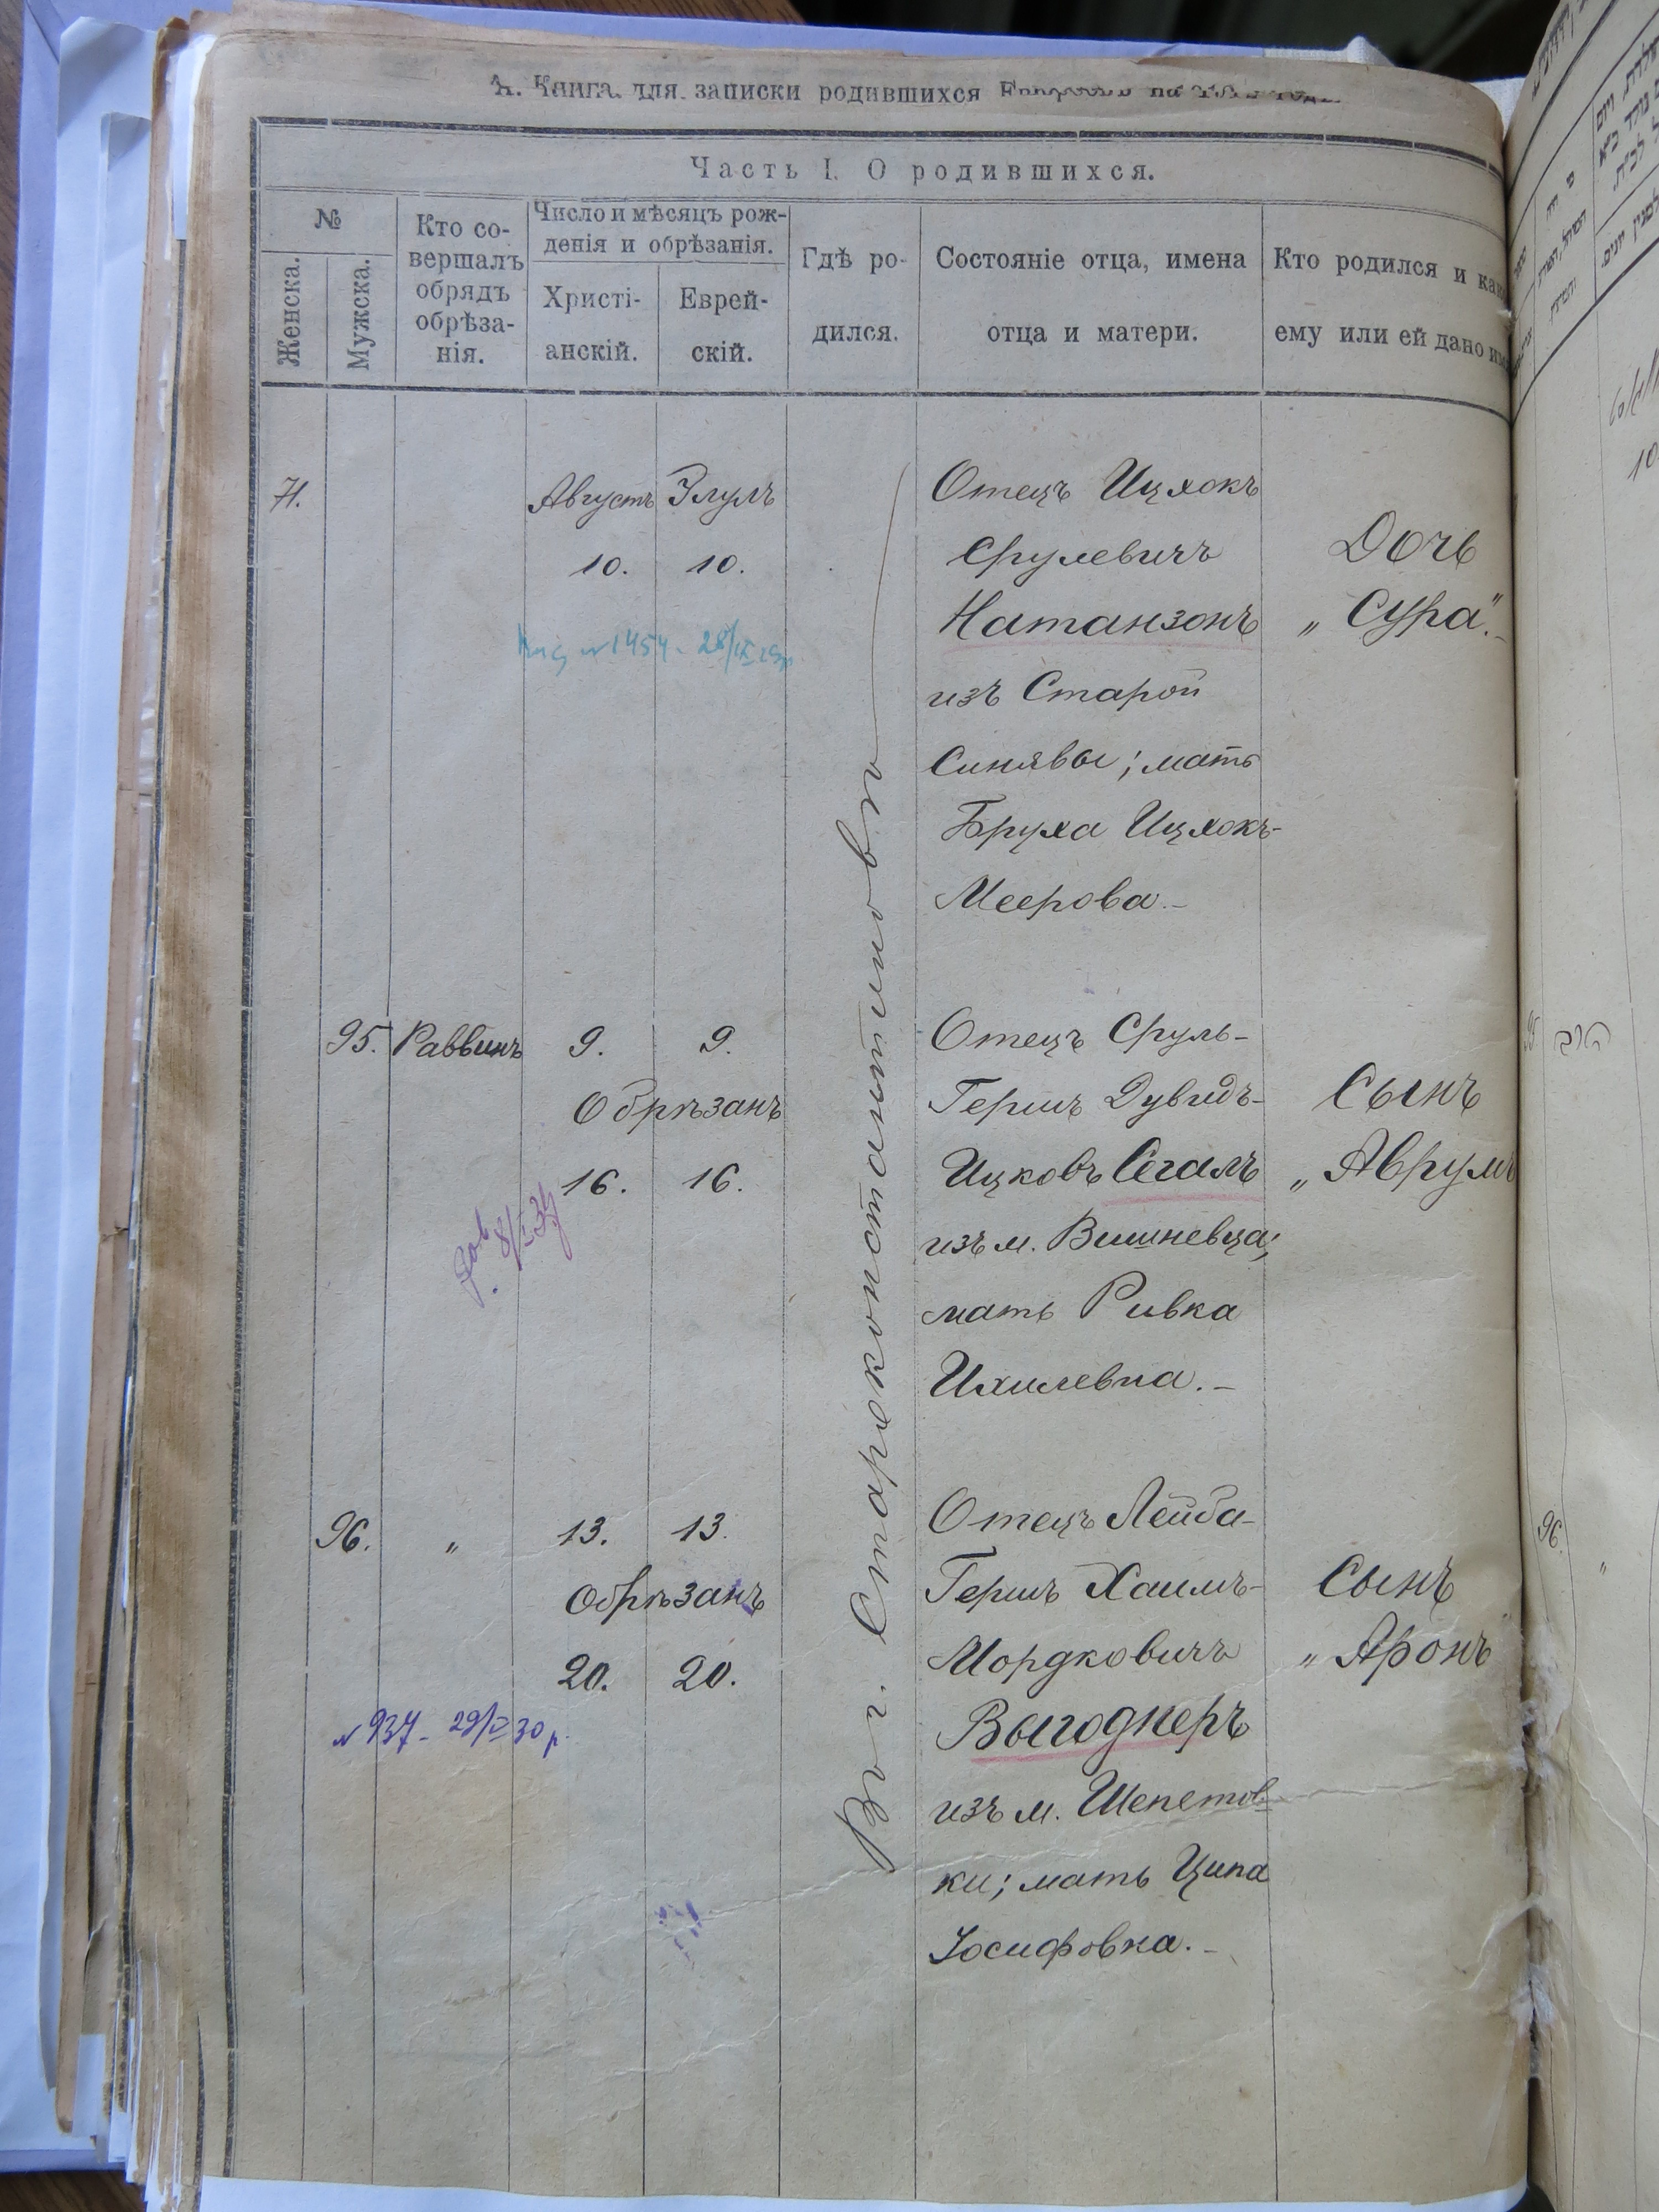 А. Книга для записки родившихся Евреевъ на
Часть I. О родившихся.
№
Женска.
Мужска.
Кто со-
вершалъ
обрядъ
обрѣза-
нія.
Число и мѣсяцъ рож-
денія и обрѣзанія.
Христі-
анскій.
Еврей-
скій.
Гдѣ ро-
дился.
Состояніе отца, имена
отца и матери.
Кто родился и как
ему или ей дано им
71.
Августъ Элулъ
10. 10.
Отецъ Ицхокъ
Срулевичъ
Натанзонъ
изъ Старой
Синявы; мать
Бруха Ицхокъ-
Меерова.-
Дочь
„Сура".-
№ 1454 - 28/IX
Въ г. Староконстантиновѣ
95. Раввинъ 9. 9.
Обрѣзанъ
16. 16.
8/I 34
Отецъ Сруль-
Гершъ Дувидъ-
Ицковъ Сегалъ
изъ м. Вишневца;
мать Ривка
Ихилевна.-
Сынъ
„Аврумъ
96. „ 13. 13.
Обрѣзанъ
20. 20.
№ 937 - 29/V 30 р.
Отецъ Лейба-
Гершъ Хаимъ-
Мордковичъ
Выгоднеръ
изъ м. Шепетов-
ки; мать Ципа
Іосифовна.-
Сынъ
„Аронъ
95
הרב
96.
„
10